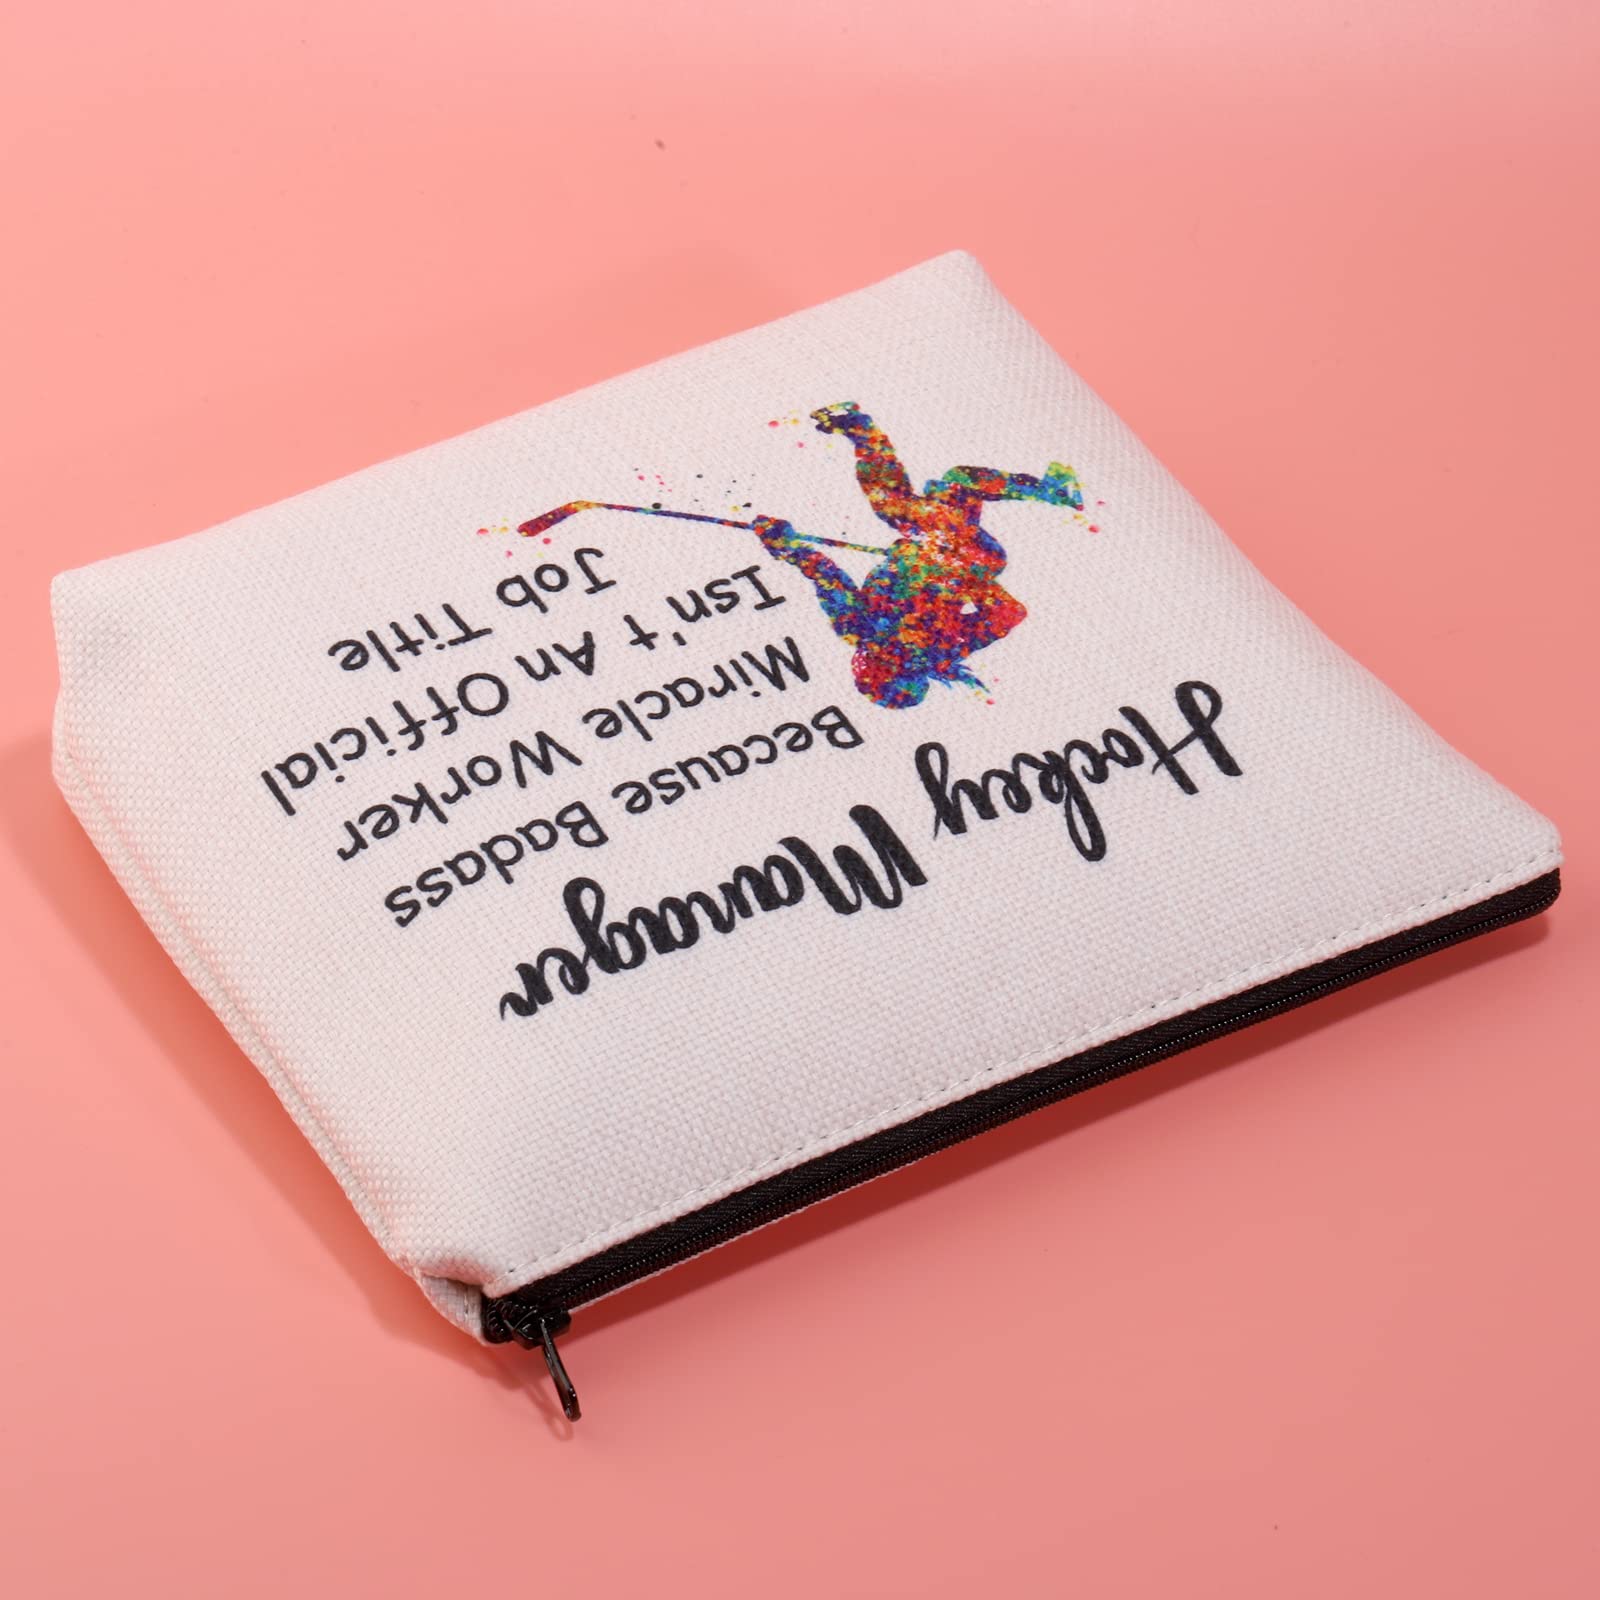 Hockey Manager
Because Badass
Miracle Worker
Isn't An Official
Job Title